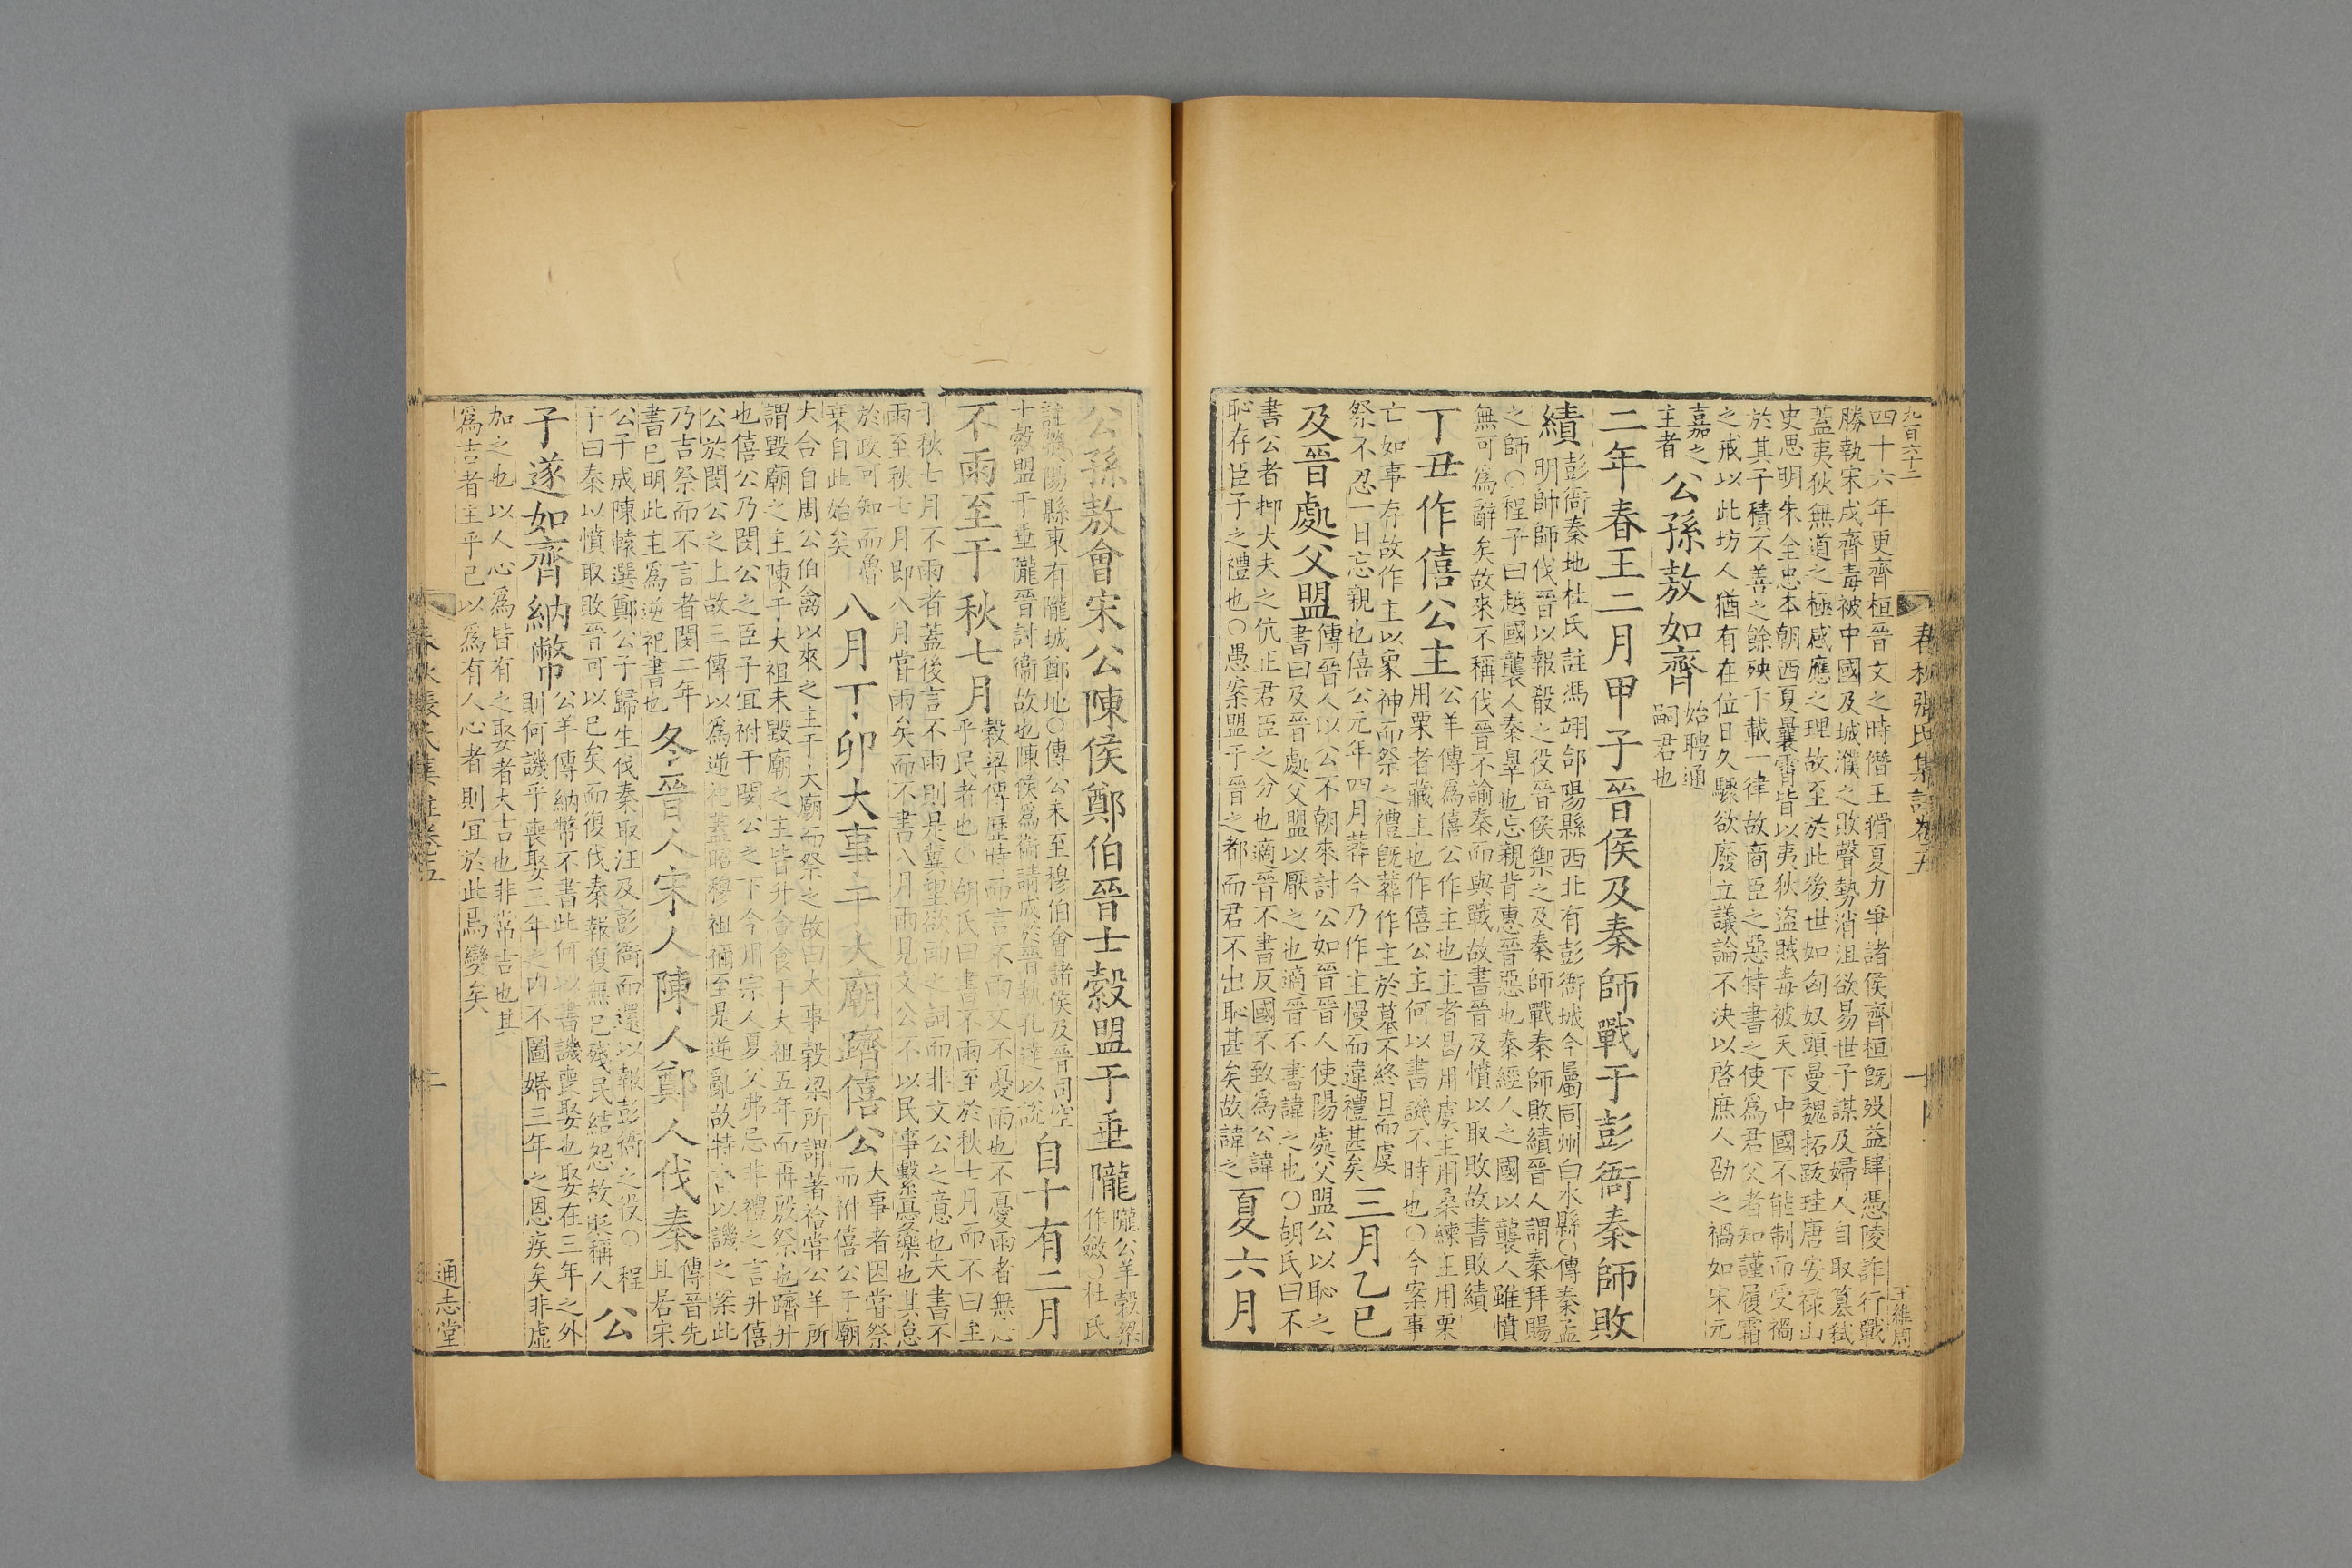 春秋張氏集註卷五
王維周
四十六年更齊桓晉文之時僭王猾夏力爭諸侯齊桓旣歿益肆憑陵詐行戰
勝執宋戍齊毒被中國及城濮之敗聲勢消沮欲易世子謀及婦人自取簒弑
蓋夷狄無道之極感應之理故至於此後世如匈奴頭曼魏拓跋珪唐安禄山
史思明朱全忠本朝西夏曩霄皆以夷狄盜賊毒被天下中國不能制而受禍
於其子積不善之餘殃下載一律故商臣之惡特書之使爲君父者知謹履霜
之戒以此坊人猶有在位日久驟欲廢立議論不決以啓庶人劭之禍如宋元
嘉之
主者
公孫敖如齊
始聘通
嗣君也
二年春王二月甲子晉侯及秦師戰于彭衙秦師敗
績
彭衙秦地杜氏註馮翊郃陽縣西北有彭衙城今屬同州白水縣○傳秦孟
明帥師伐晉以報殽之役晉侯禦之及秦師戰秦師敗績晉人謂秦拜賜
之師○程子曰越國襲人秦辠也忘親背惠晉惡也秦經人之國以襲人雖憤
無可爲辭矣故來不稱伐晉不諭秦而與戰故書晉及憤以取敗故書敗績
丁丑作僖公主
公羊傳爲僖公作主也主者曷用虞主用桑練主用栗
用栗者藏主也作僖公主何以書譏不時也○今案事
亡如事存故作主以象神而祭之禮旣葬作主於墓不終日而虞
祭不忍一日忘親也僖公元年四月葬今乃作主慢而違禮甚矣
三月乙巳
及晉處父盟
傳晉人以公不朝來討公如晉晉人使陽處父盟公以恥之
書曰及晉處父盟以厭之也適晉不書諱之也○胡氏曰不
書公者抑大夫之伉正君臣之分也適晉不書反國不致爲公諱
恥存臣子之禮也○愚案盟于晉之都而君不出恥甚矣故諱之
夏六月
公孫敖會宋公陳侯鄭伯晉士縠盟于垂隴
隴公羊穀梁
作斂○杜氏
註滎陽縣東有隴城鄭地○傳公未至穆伯會諸侯及晉司空
士縠盟于垂隴晉討衞故也陳侯爲衞請成於晉執孔達以說
自十有二月
不雨至于秋七月
穀梁傳歷時而言不雨文不憂雨也不憂雨者無志
乎民者也○胡氏曰書不雨至於秋七月而不曰至
于秋七月不雨者蓋後言不雨則是冀望欲雨之詞而非文公之意也夫書不
雨至秋七月即八月嘗雨矣而不書八月雨見文公不以民事繫憂樂也其怠
於政可知而魯
衰自此始矣
八月丁卯大事于大廟躋僖公
大事者因嘗祭
而祔僖公于廟
大合自周公伯禽以來之主于大廟而祭之故曰大事穀梁所謂著祫嘗公羊所
謂毀廟之主陳于大祖未毀廟之主皆升合食于大祖五年而再殷祭也躋升
也僖公乃閔公之臣子宜祔于閔公之下今用宗人夏父弗忌非禮之言升僖
公於閔公之上故三傳以爲逆祀蓋昭穆祖禰至是逆亂故特書以譏之案此
乃吉祭而不言者閔二年
書已明此主爲逆祀書也
冬晉人宋人陳人鄭人伐秦
傳晉先
且居宋
公子成陳轅選鄭公子歸生伐秦取汪及彭衙而還以報彭衙之役○程
子曰秦以憤取敗晉可以已矣而復伐秦報復無已殘民結怨故貶稱人
公
子遂如齊納幣
公羊傳納幣不書此何以書譏喪娶也娶在三年之外
則何譏乎喪娶三年之內不圖婚三年之恩疾矣非虛
加之也以人心爲皆有之娶者大吉也非常吉也其
爲吉者主乎己以爲有人心者則宜於此焉變矣
春秋張氏集註卷五
二
通志堂